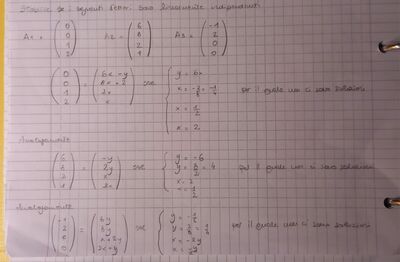 Stabilire se i seguenti vettori sono linearmente indipendenti
A1 = (0 0 1 2) A2 = (6 8 2 1) A3 = (-1 2 0 0)
(0 0 1 2) = (6x - y 8x + 2 2x x) sse { y = 6x
x = 1/2
x = 2
per il quale non ci sono soluzioni
Analogamente
(6 8 2 1) = (-y 2y x 2x) sse { y = -6
y = 8/2 = 4
x = 2
x = 1/2
per il quale non ci sono soluzioni
Analogamente
(-1 2 0 0) = (6y 8y x + 2y 2x + y) sse { y = -1/6
y = 2/8 = 1/4
x = -2y
x = -y/2
per il quale non ci sono soluzioni